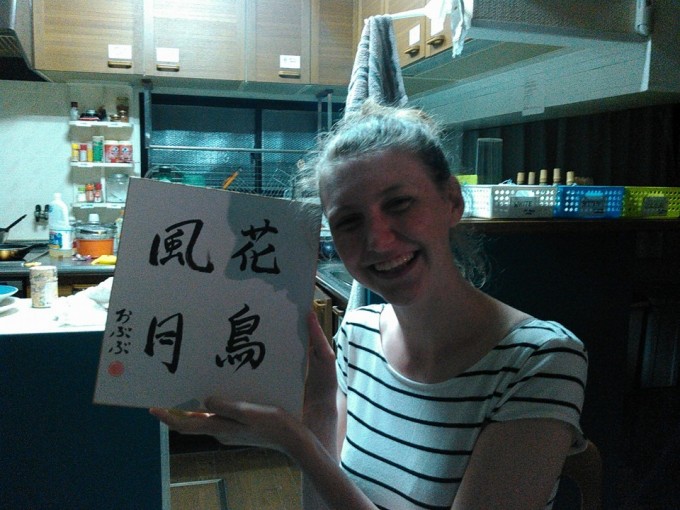 花鳥
風月
おぶぶ